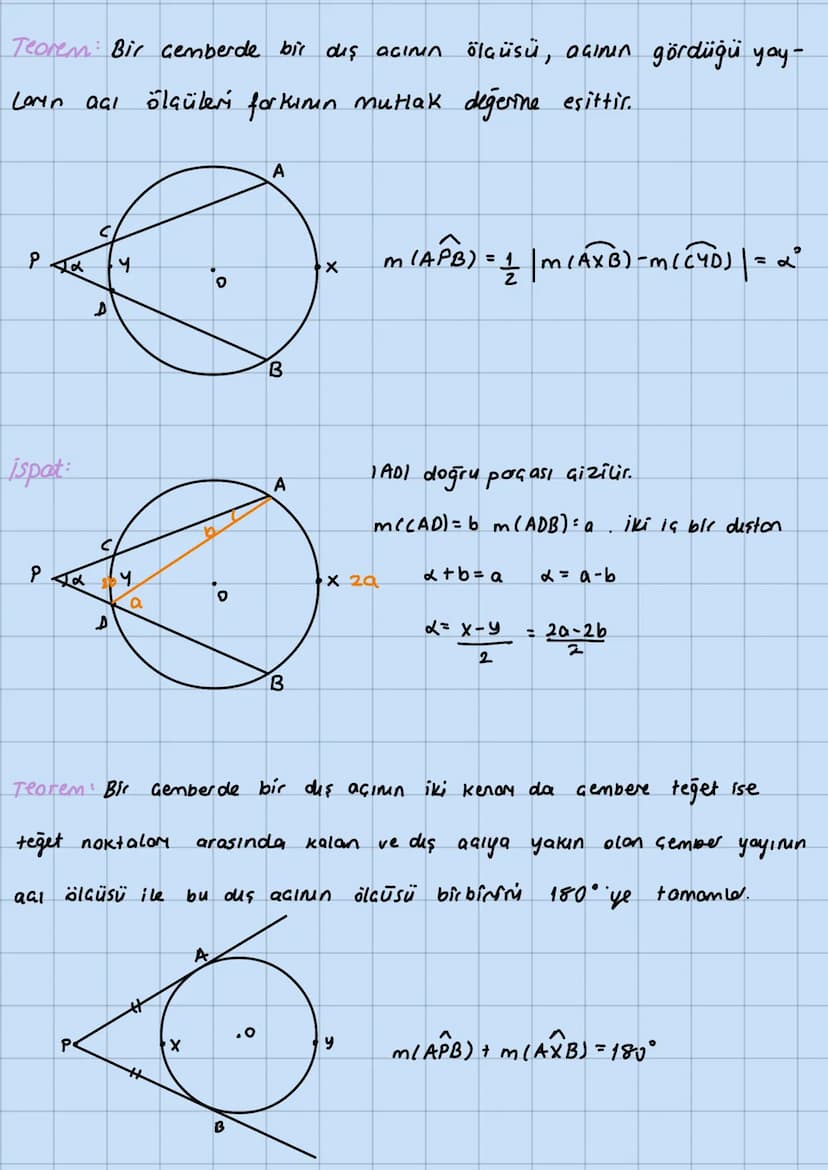 Teorem: Bir çemberde bir dış açının ölçüsü, açının gördüğü yay-
ların açı ölçüleri farkının mutlak değerine eşittir.
A
C
P α y x
O
D
B
m(APB) = 1/2 |m(AXB) - m(CYD)| = α°
ispat:
A
C b
P α 2b y x 2a
a O
D
B
|AD| doğru parçası çizilir.
m(CAD) = b m(ADB) = a . iki iç bir dıştan
α + b = a α = a - b
α = x-y/2 = 2a-2b/2
Teorem: Bir çemberde bir dış açının iki kenarı da çembere teğet ise
teğet noktaları arasında kalan ve dış açıya yakın olan çember yayının
açı ölçüsü ile bu dış açının ölçüsü birbirini 180°'ye tamamlar.
A
P x O y
B
m(APB) + m(AXB) = 180°